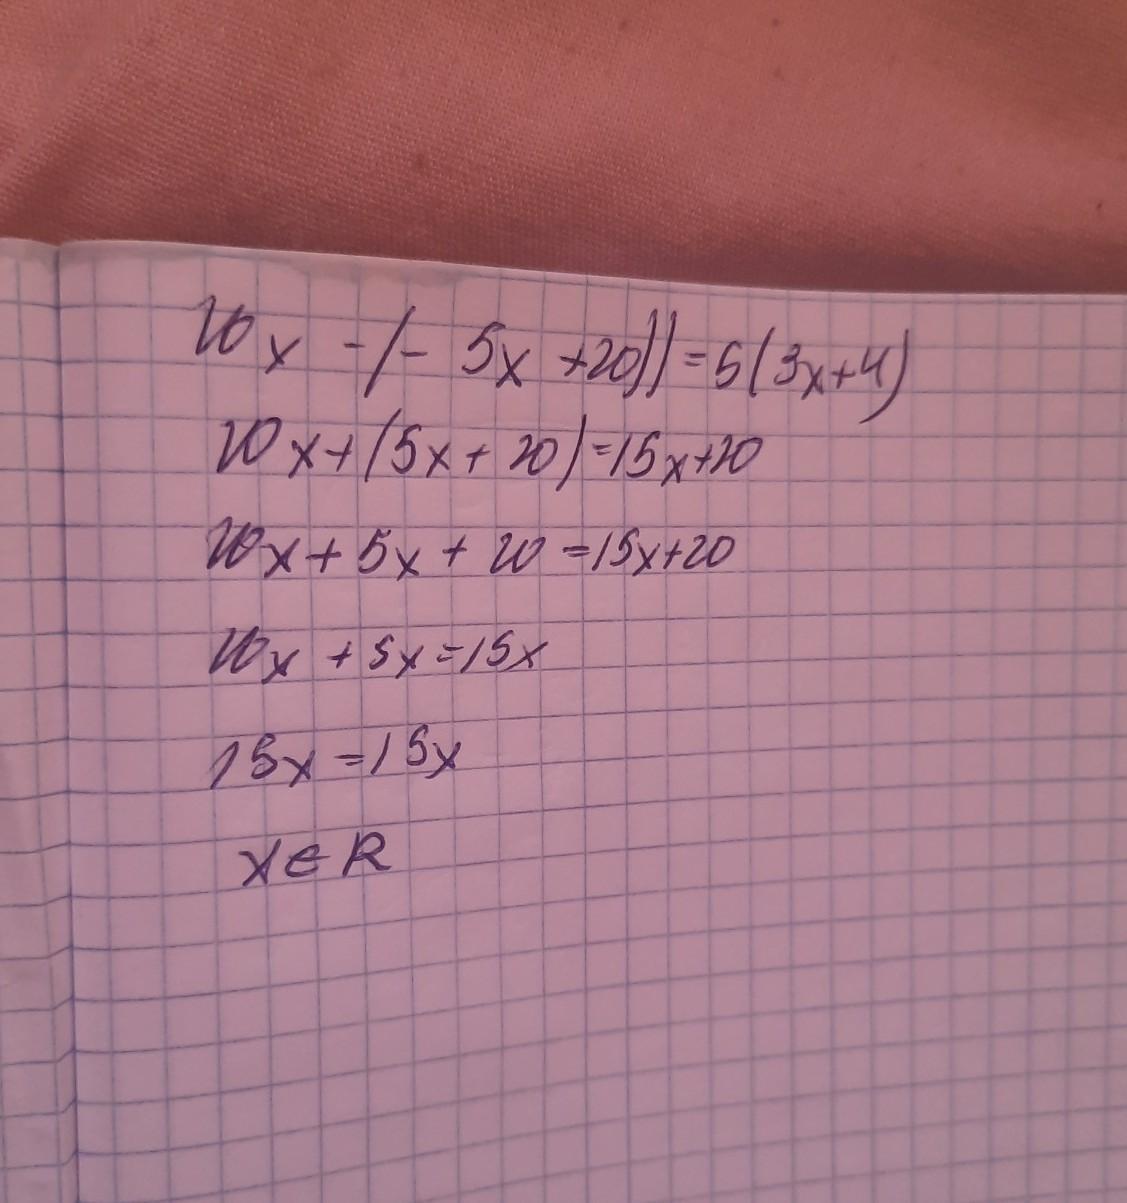 10x -(- 5x +20)) = 5(3x+4)
10x+(5x+20)=15x+20
10x+5x+20=15x+20
10x +5x=15x
15x=15x
x∈R